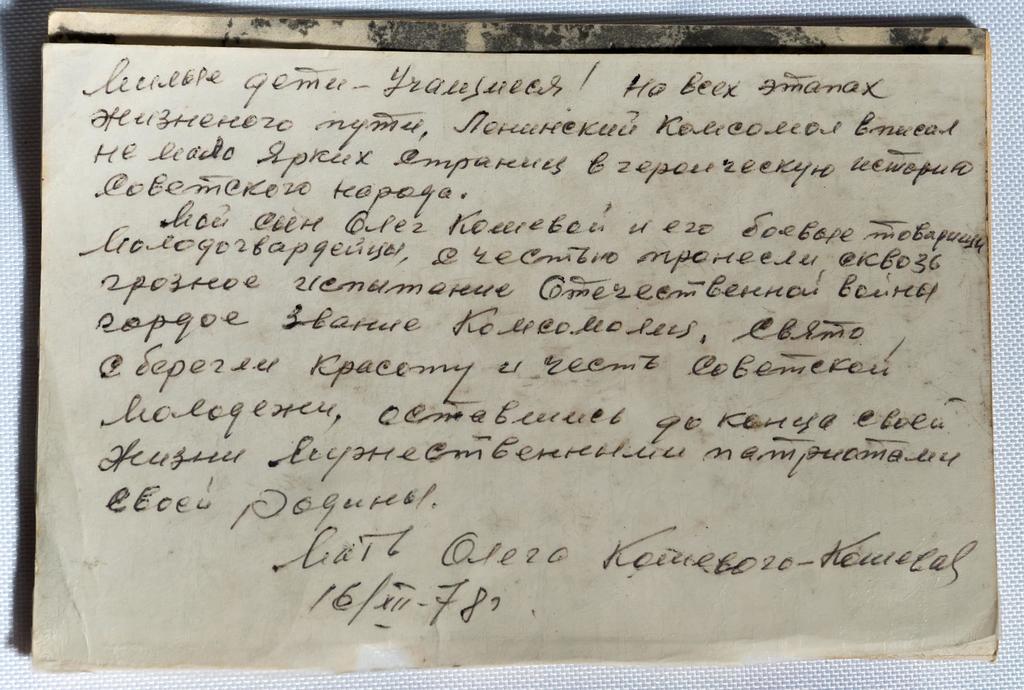 Милые дети - Учащиеся! На всех этапах
Жизненого пути, Ленинский Комсомол вписал
не мало Ярких Страниц в героическую историю
Советского народа.
Мой сын Олег Кошевой и его боевые товарищи
Молодогвардейцы, с честью пронесли, сквозь
грозное испытание Отечественной войны
гордое Звание Комсомолец, свято,
сберегли Красоту и честь Советской
Молодежи, оставшись до конца своей
Жизни Мужественными патриотами
своей Родины.
Мать Олега Кошевого - Кошевая
16/XII-78г